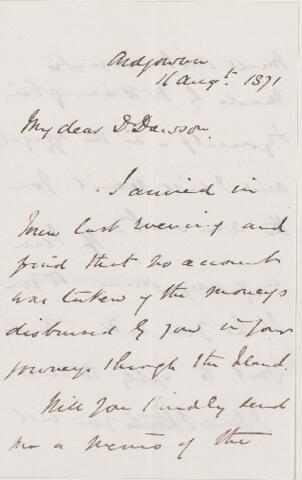 Ardgowan
16 Augt. 1871
My dear Dr. Dawson.
I arrived in
Town last evening and
find that no account
was taken of the moneys
disbursed by you in your
journeys through the Island.
Will you kindly send
me a memo of the